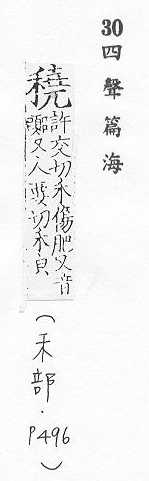 30 四聲篇海
穘
許交切禾傷肥又音
又人要切禾皃
（禾部．P496）